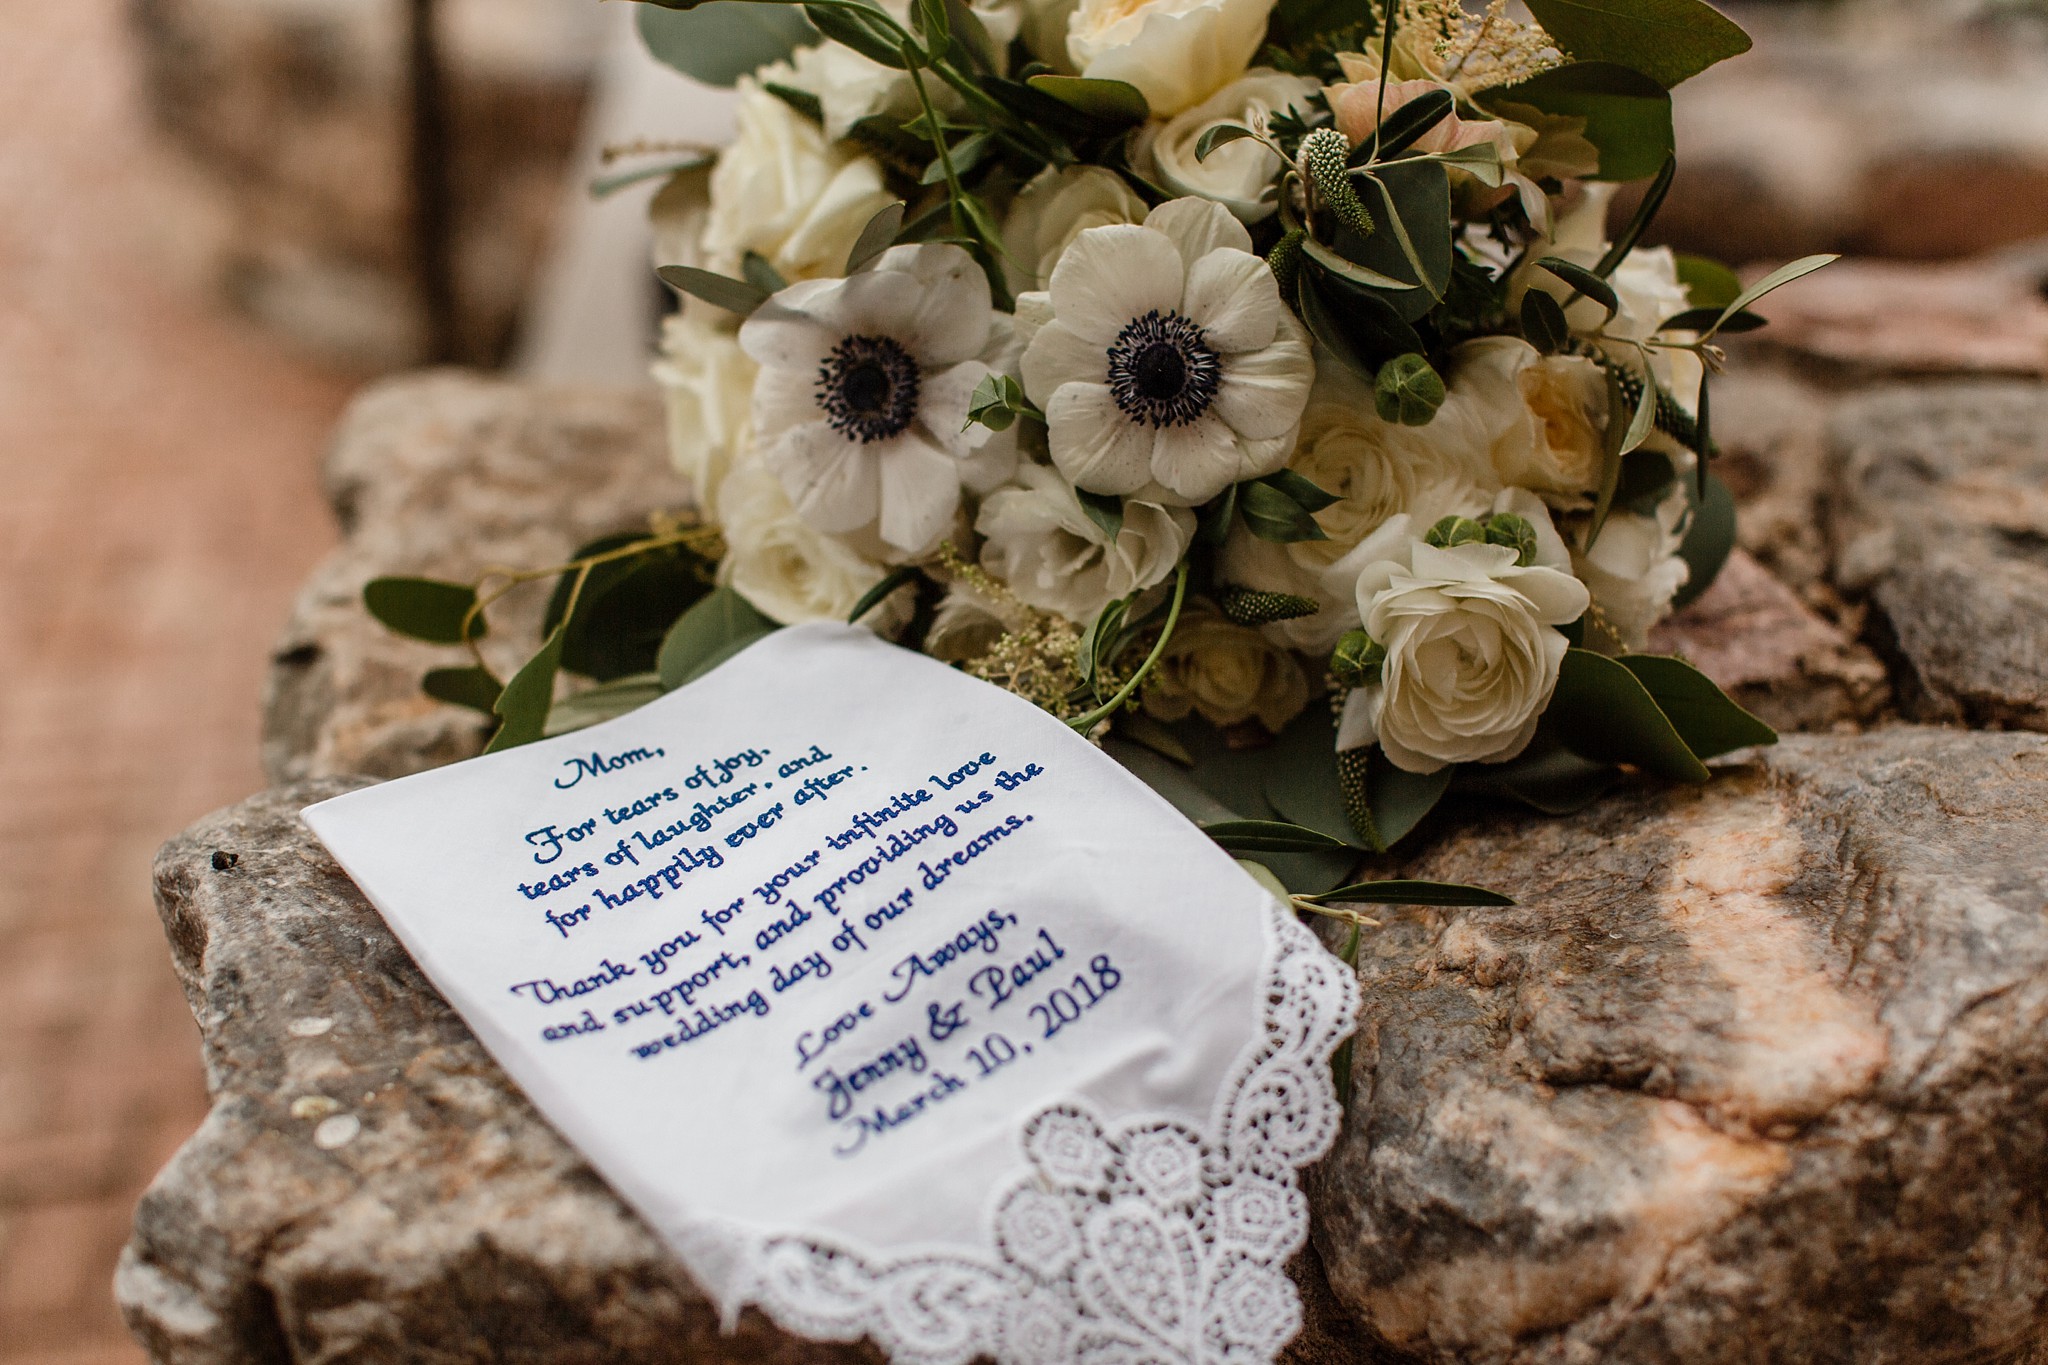 Mom,
For tears of joy,
tears of laughter, and
for happily ever after.
Thank you for your infinite love
and support, and providing us the
wedding day of our dreams.
Love Always,
Jenny & Paul
March 10, 2018